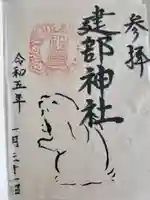 参拝
建部神社
令和五年
一月二十一日